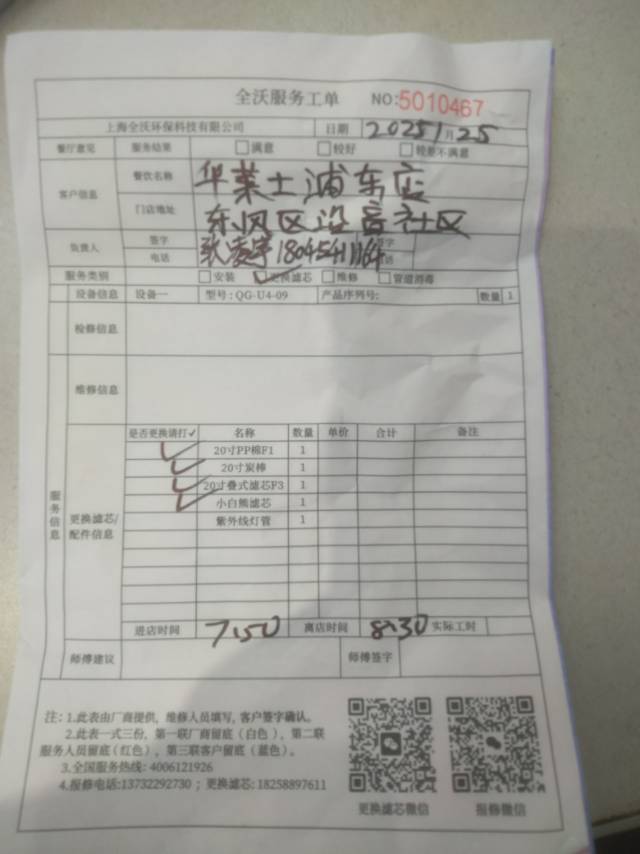 全沃服务工单 NO:5010467
上海全沃环保科技有限公司 日期 2025 1月25
餐厅意见 服务结果 满意 较好 较差不满意
客户信息 餐饮名称 华莱士浦东店
门店地址 东风区设音社区
负责人 签字 签字
电话 18045411164 电话
服务类别 安装 更换滤芯 维修 管道消毒
设备信息 设备一 型号:QG-U4-09 产品序列号: 数量 1
检修信息
维修信息
服务信息
更换滤芯/配件信息
是否更换请打✓ 名称 数量 单价 合计 备注
✓ 20寸PP棉F1 1
✓ 20寸炭棒 1
✓ 20寸叠式滤芯F3 1
✓ 小白熊滤芯 1
紫外线灯管 1
进店时间 7:50 离店时间 8:30 实际工时
师傅建议 师傅签字
注:1.此表由厂商提供,维修人员填写,客户签字确认。
2.此表一式三份,第一联厂商留底(白色),第二联
服务人员留底(红色),第三联客户留底(蓝色)。
3.全国服务热线:4006121926
4.报修电话:13732292730;更换滤芯:18258897611
更换滤芯微信 报修微信